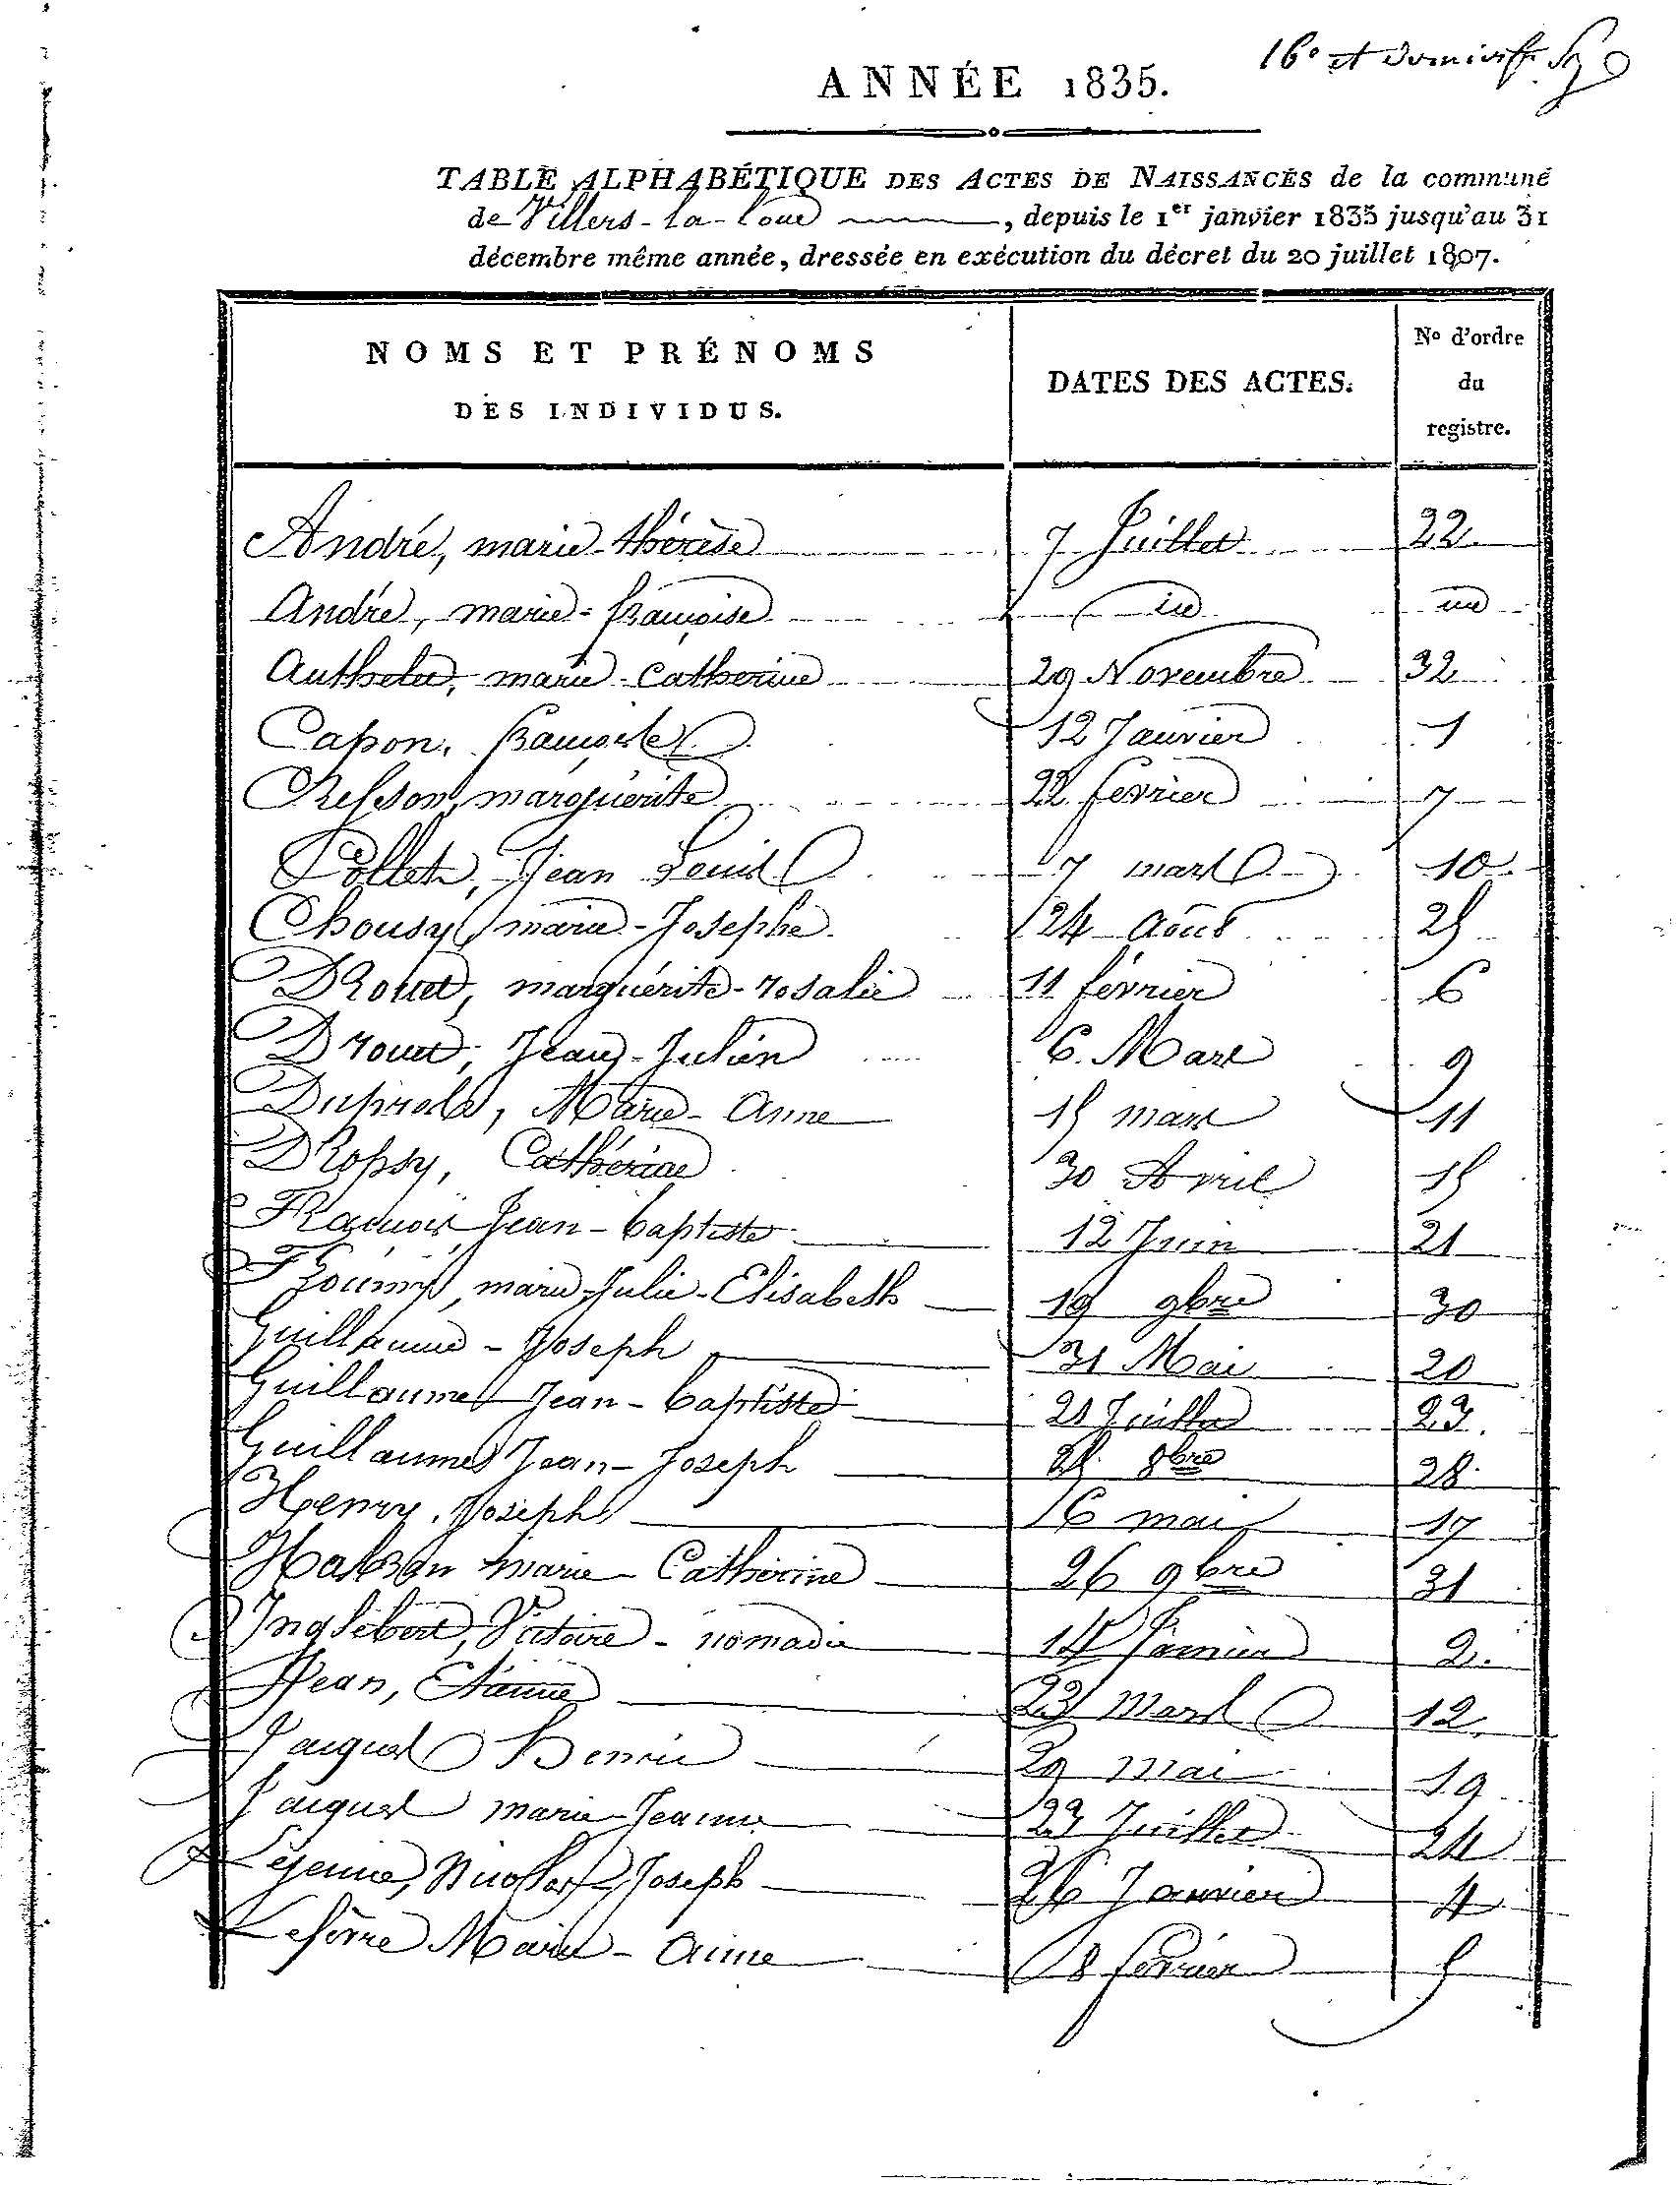 16e et
ANNÉE 1835.
TABLE ALPHABÉTIQUE DES ACTES DE NAISSANCES de la commune
de Villers-la-loue, depuis le 1er janvier 1835 jusqu'au 31
décembre même année, dressée en exécution du décret du 20 juillet 1807.
NOMS ET PRÉNOMS
DES INDIVIDUS.
DATES DES ACTES.
No d'ordre
du
registre.
André, marie-thérèse 7 Juillet 22
André, marie-françoise id id
marie-Catherine 29 Novembre 32
Capon, françoise 12 Janvier 1
marguérite 22 fevrier 7
Collet, Jean Louis 7 mars 10
Chousy, marie-Josephe 24 Août 25
Drouet, marguérite-rosalie 11 février 6
Drouet, Jean-Julien 6. Mars 9
Marie-Anne 15 mars 11
Dropsy, Cathérine 30 Avril 15
François Jean-baptiste 12 Juin 21
marie-Julie-Elisabeth 19 9bre 30
Guillaume-Joseph 31 Mai 20
Guillaume Jean-baptiste 21 Juillet 23.
Guillaume Jean-Joseph 25 8bre 28
Henry, Joseph 16 mai 17
marie-Catherine 26 9bre 31
Inglebert, Victoire-nomadie 14 Janvier 2.
Jean, Etienne 23 mars 12
Jaques Henri 29 mai 19
Jaques marie-Jeanne 23 Juillet 24
Lejeune, Nicolas-Joseph 26 Janvier 4
Lefèvre Marie-Anne 8 février 5